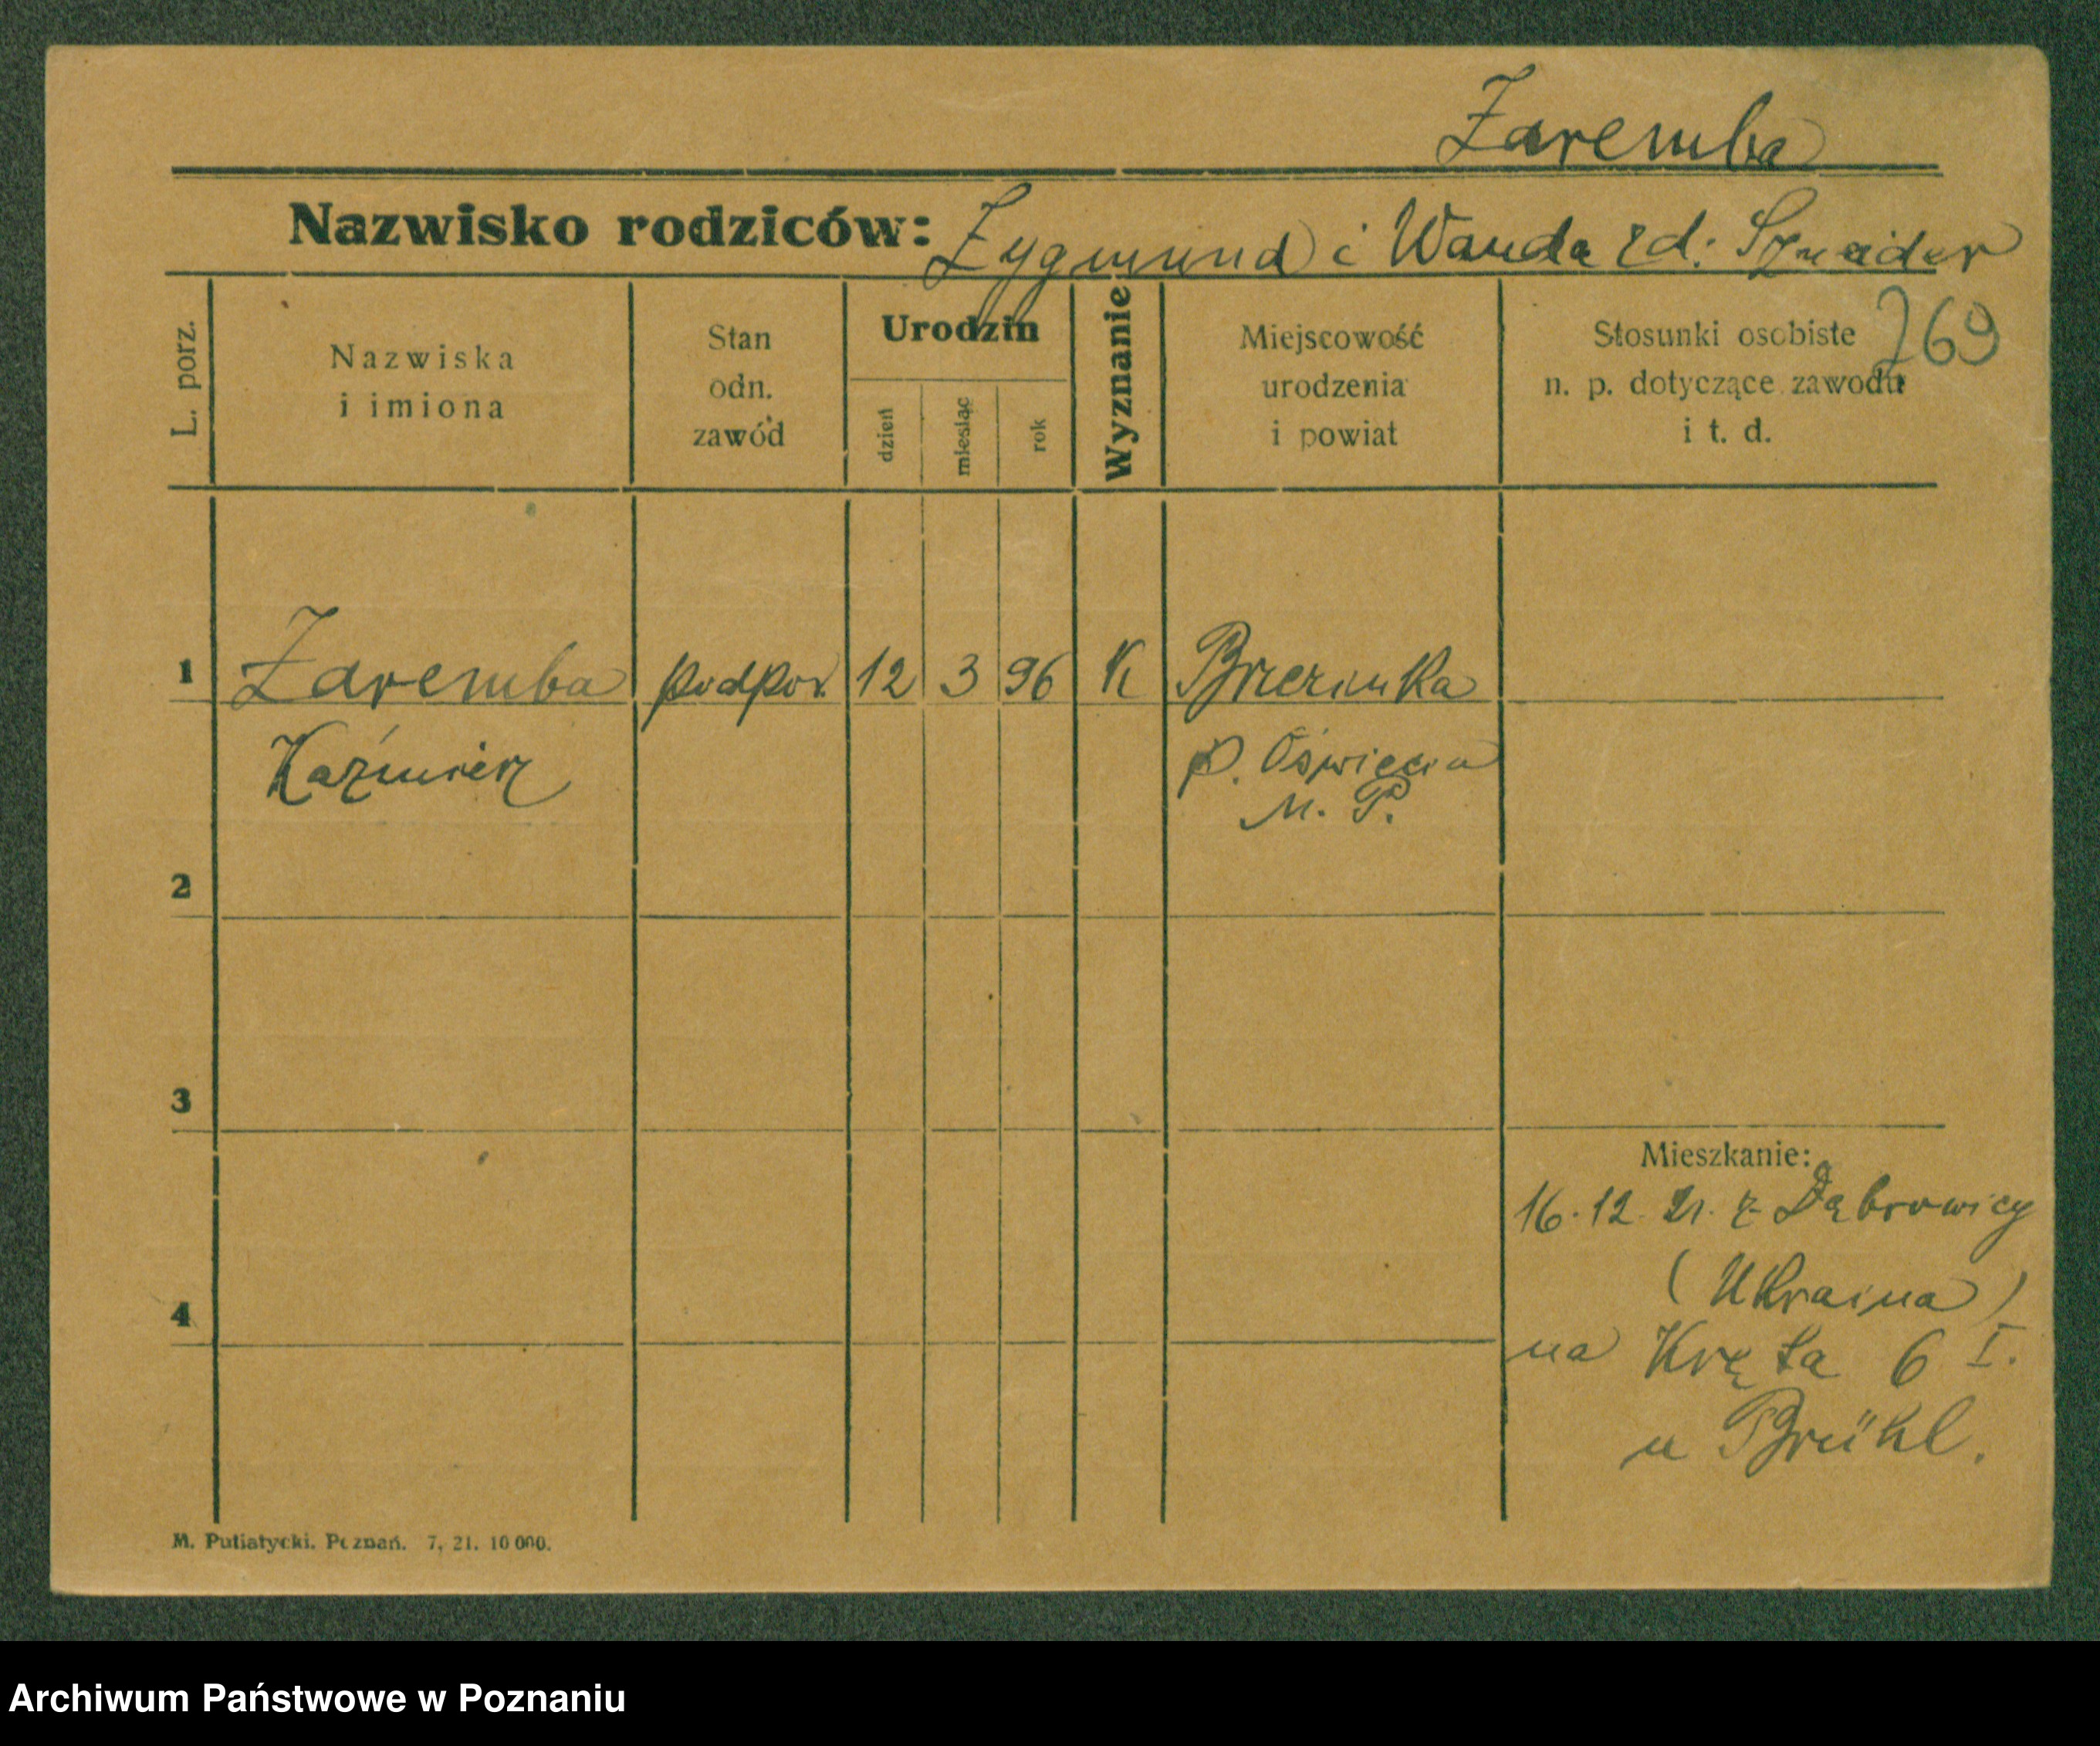 Zaremba
Nazwisko rodziców: Zygmund i Wanda zd. Sznaider
269
L. porz.
Nazwiska
i imiona
Stan
odn.
zawód
Urodzin
dzień
miesiąc
rok
Wyznanie
Miejscowość
urodzenia
i powiat
Stosunki osobiste
n. p. dotyczące zawodu
i t. d.
1 Zaremba podpor. 12 3 96 K Brzezinka
Kaźmierz p. Oświęcim
M. P.
2
3
Mieszkanie:
16.12.21. z Dąbrowicy
(Ukraina)
4
na Kręta 6 I.
u Brühl.
M. Putiatycki. Poznań. 7, 21. 10 000.
Archiwum Państwowe w Poznaniu